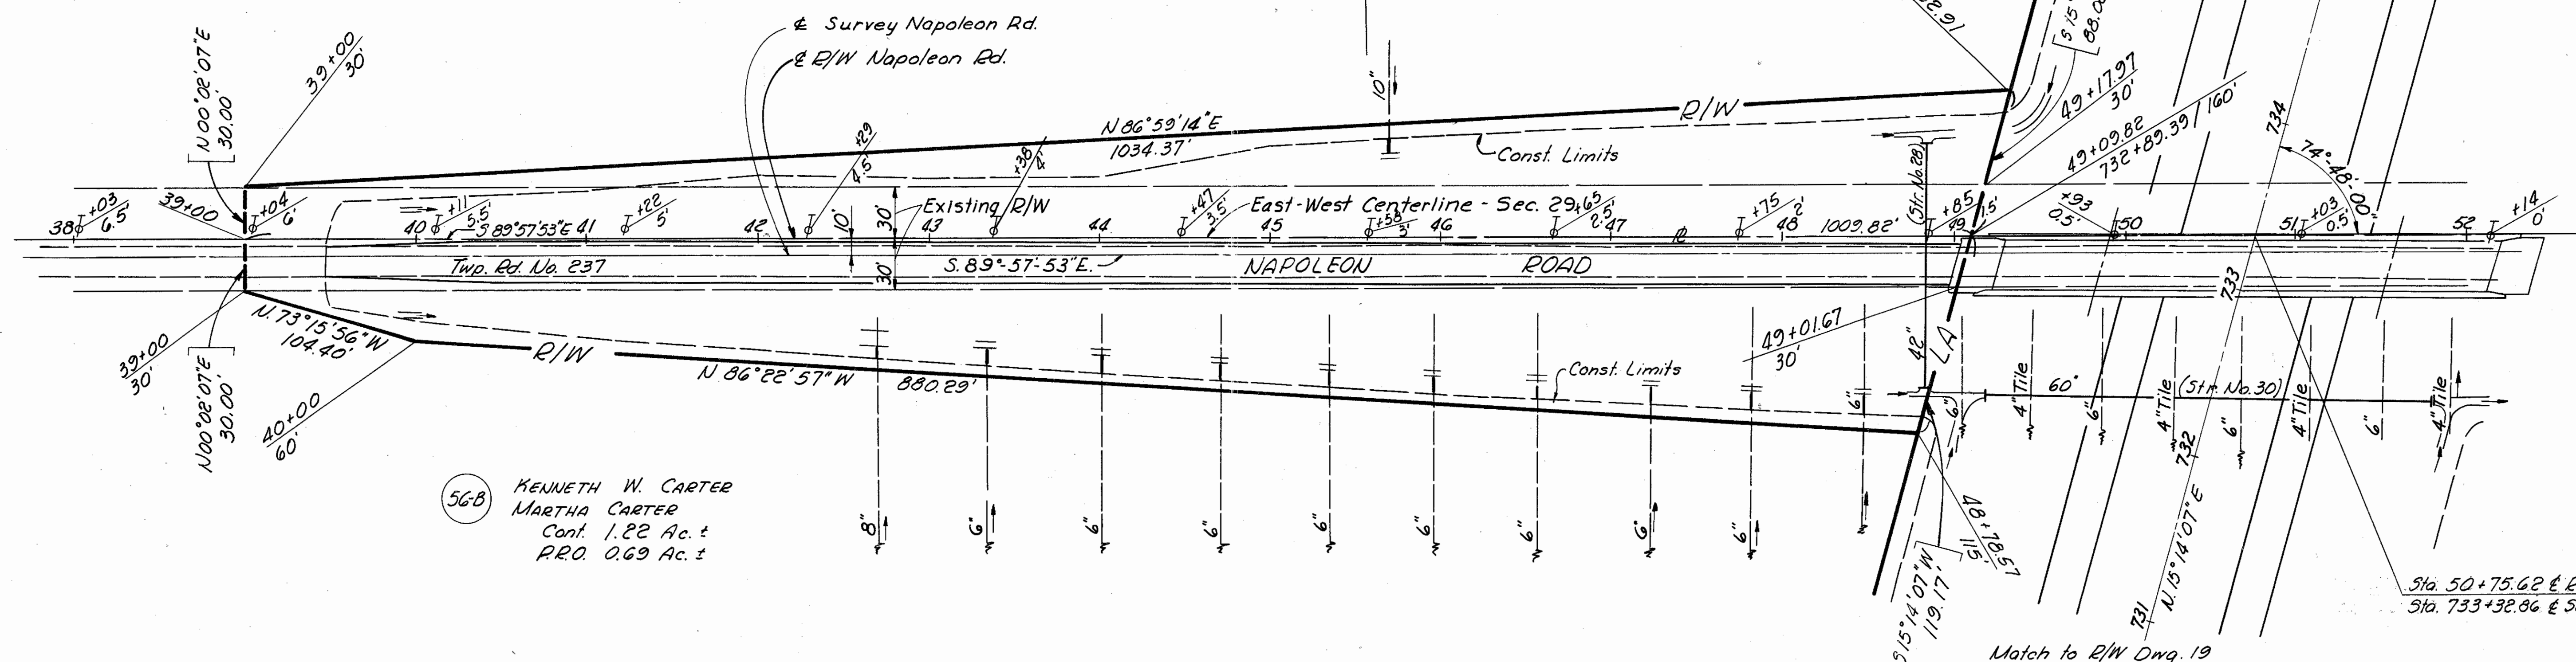 ℄ Survey Napoleon Rd.
℄ R/W Napoleon Rd.
N00°02'07"E
30.00'
39+00
30'
10"
N 86°59'14"E
1034.37'
R/W
Const. Limits
S 15°
49+17.97
30'
49+09.82
732+89.39 / 160'
734
74°-48'-00"
+29
4.5'
+38
4'
(Str. No. 28)
38
+03
6.5'
39+00
+04
6'
40
+11
5.5'
S 89°57'53"E
41
+22
5'
42
10'
30'
Existing R/W
43
44
+47
3.5'
East-West Centerline - Sec. 29
45
+58
3'
46
+65
2.5'
47
+75
2'
48
1009.82'
+85
1.5'
49
+93
0.5'
50
51
+03
0.5'
52
+14
0'
Twp. Rd. No. 237
30'
S. 89°-57'-53"E.
NAPOLEON ROAD
733
N. 73°15'56" W
104.40'
39+00
30'
N00°02'07"E
30.00'
40+00
60'
R/W
N 86°22'57" W
880.29'
Const. Limits
49+01.67
30'
42"
LA
60"
(Str. No. 30)
6"
6"
4" Tile
6"
4" Tile
6"
4" Tile
6"
4" Tile
732
56-B
KENNETH W. CARTER
MARTHA CARTER
Cont. 1.22 Ac. ±
P.R.O. 0.69 Ac. ±
8"
6"
6"
6"
6"
6"
6"
6"
6"
48+78.57
115'
S 15°14'07" W
119.17'
731
N. 15°14'07" E
Sta. 50+75.62 ℄
Sta. 733+32.86 ℄
Match to R/W Dwg. 19